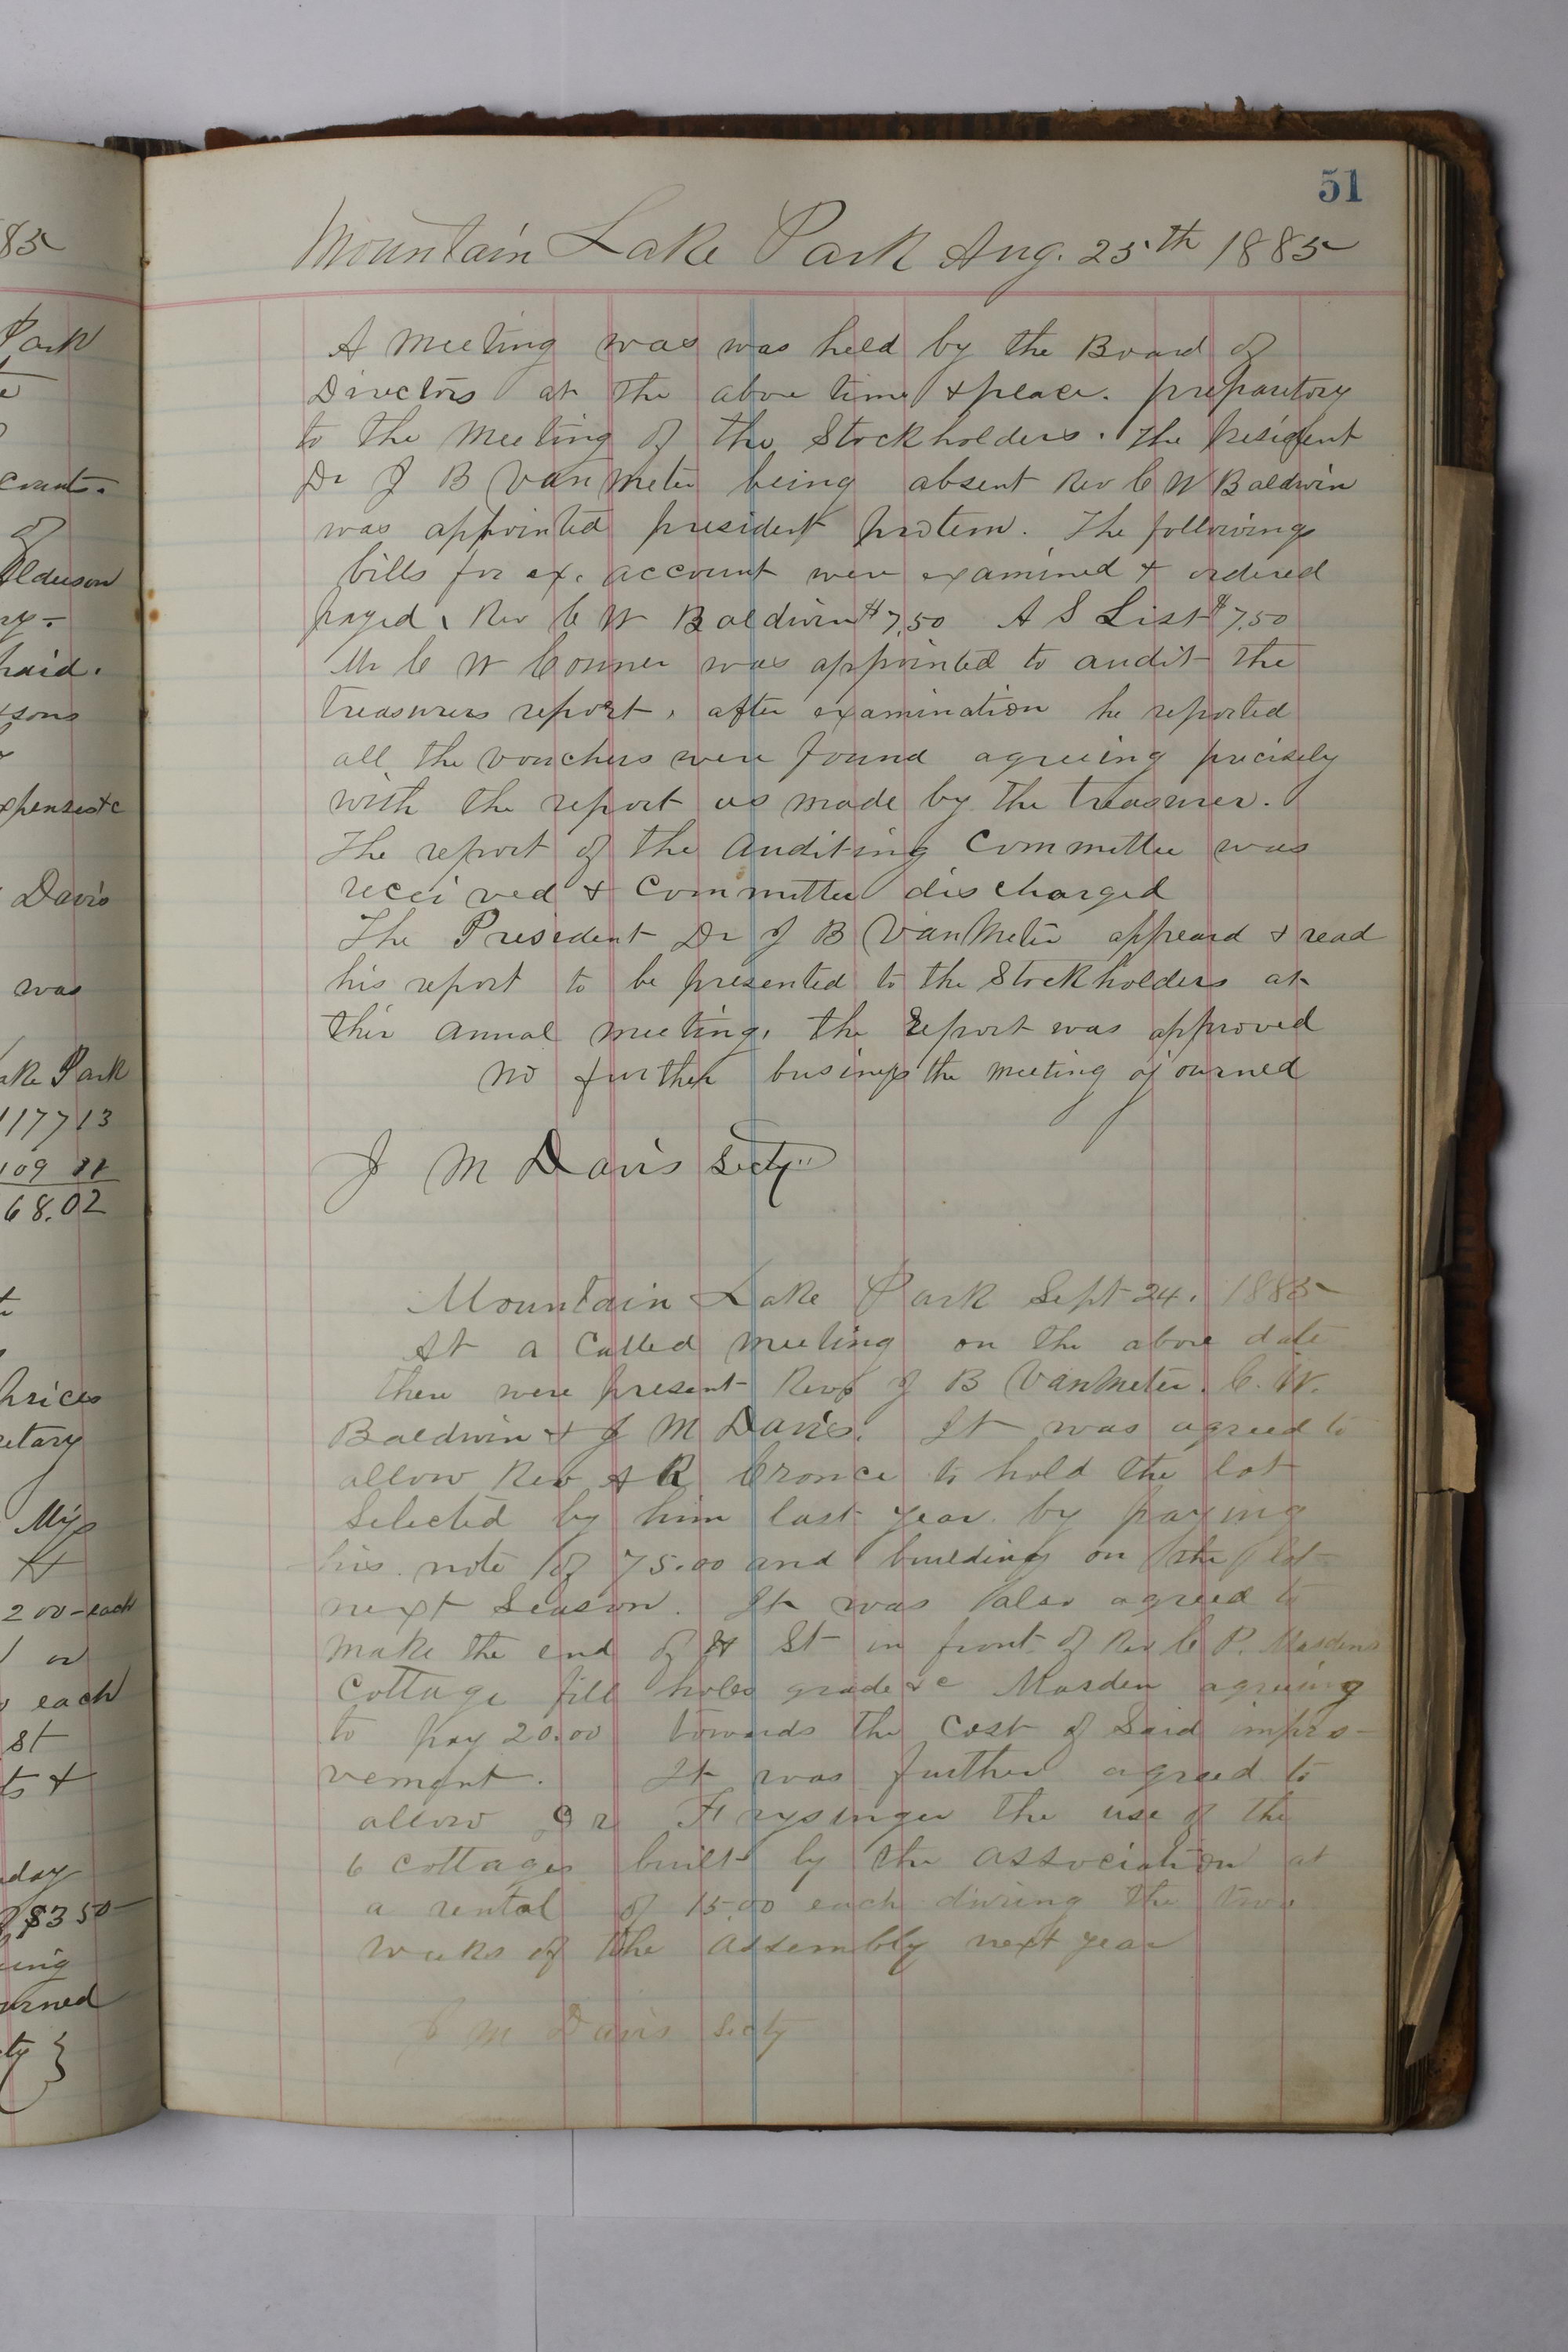 51
Mountain Lake Park Aug. 25th 1885
A meeting was was held by the Board of
Directors at the above time & place. preparitory
to the meeting of the Stockholders. The President
Dr J B VanMeter being absent Rev C W Baldwin
was appointed president protem. The following
bills for ex. account were examined & ordered
payed. Rev C W Baldwin $7.50 A S List $7.50
Mr C W Conner was appointed to audit the
treasurers report. after examination he reported
all the vouchers were found agreeing precisely
with the report as made by the treasurer.
The report of the Auditing Committee was
received & Committee discharged
The President Dr J B VanMeter appeard & read
his report to be presented to the Stockholders at
thir annual meeting. the Report was approved
no further business the meeting ajourned
J M Davis Secty
Mountain Lake Park Sept 24. 1885
At a Called meeting on the above date
there were present Revs J B VanMeter. C. W.
Baldwin & J M Davis. It was agreed to
allow Rev A R Cronce to hold the lot
Selected by him last year by paying
his note of 75.00 and building on the lot
next Season. It was also agreed to
make the end of H St in front of Rev C P. Masdens
Cottage fill holes grade &c Masden agreeing
to pay 20.00 towards the Cost of Said impro-
vement. It was further agreed to
allow Dr Frysinger the use of the
6 Cottages built by the Association at
a rental of 15.00 each during the two
weeks of the Assembly next year
J M Davis Secty
85
Park
counts.
of
Alderson
paid.
expenses &c
Davis
was
Lake Park
117713
68.02
prices
retary
Miss
H
200 each
or
each
St
ts &
day
$350
ing
urned
ty